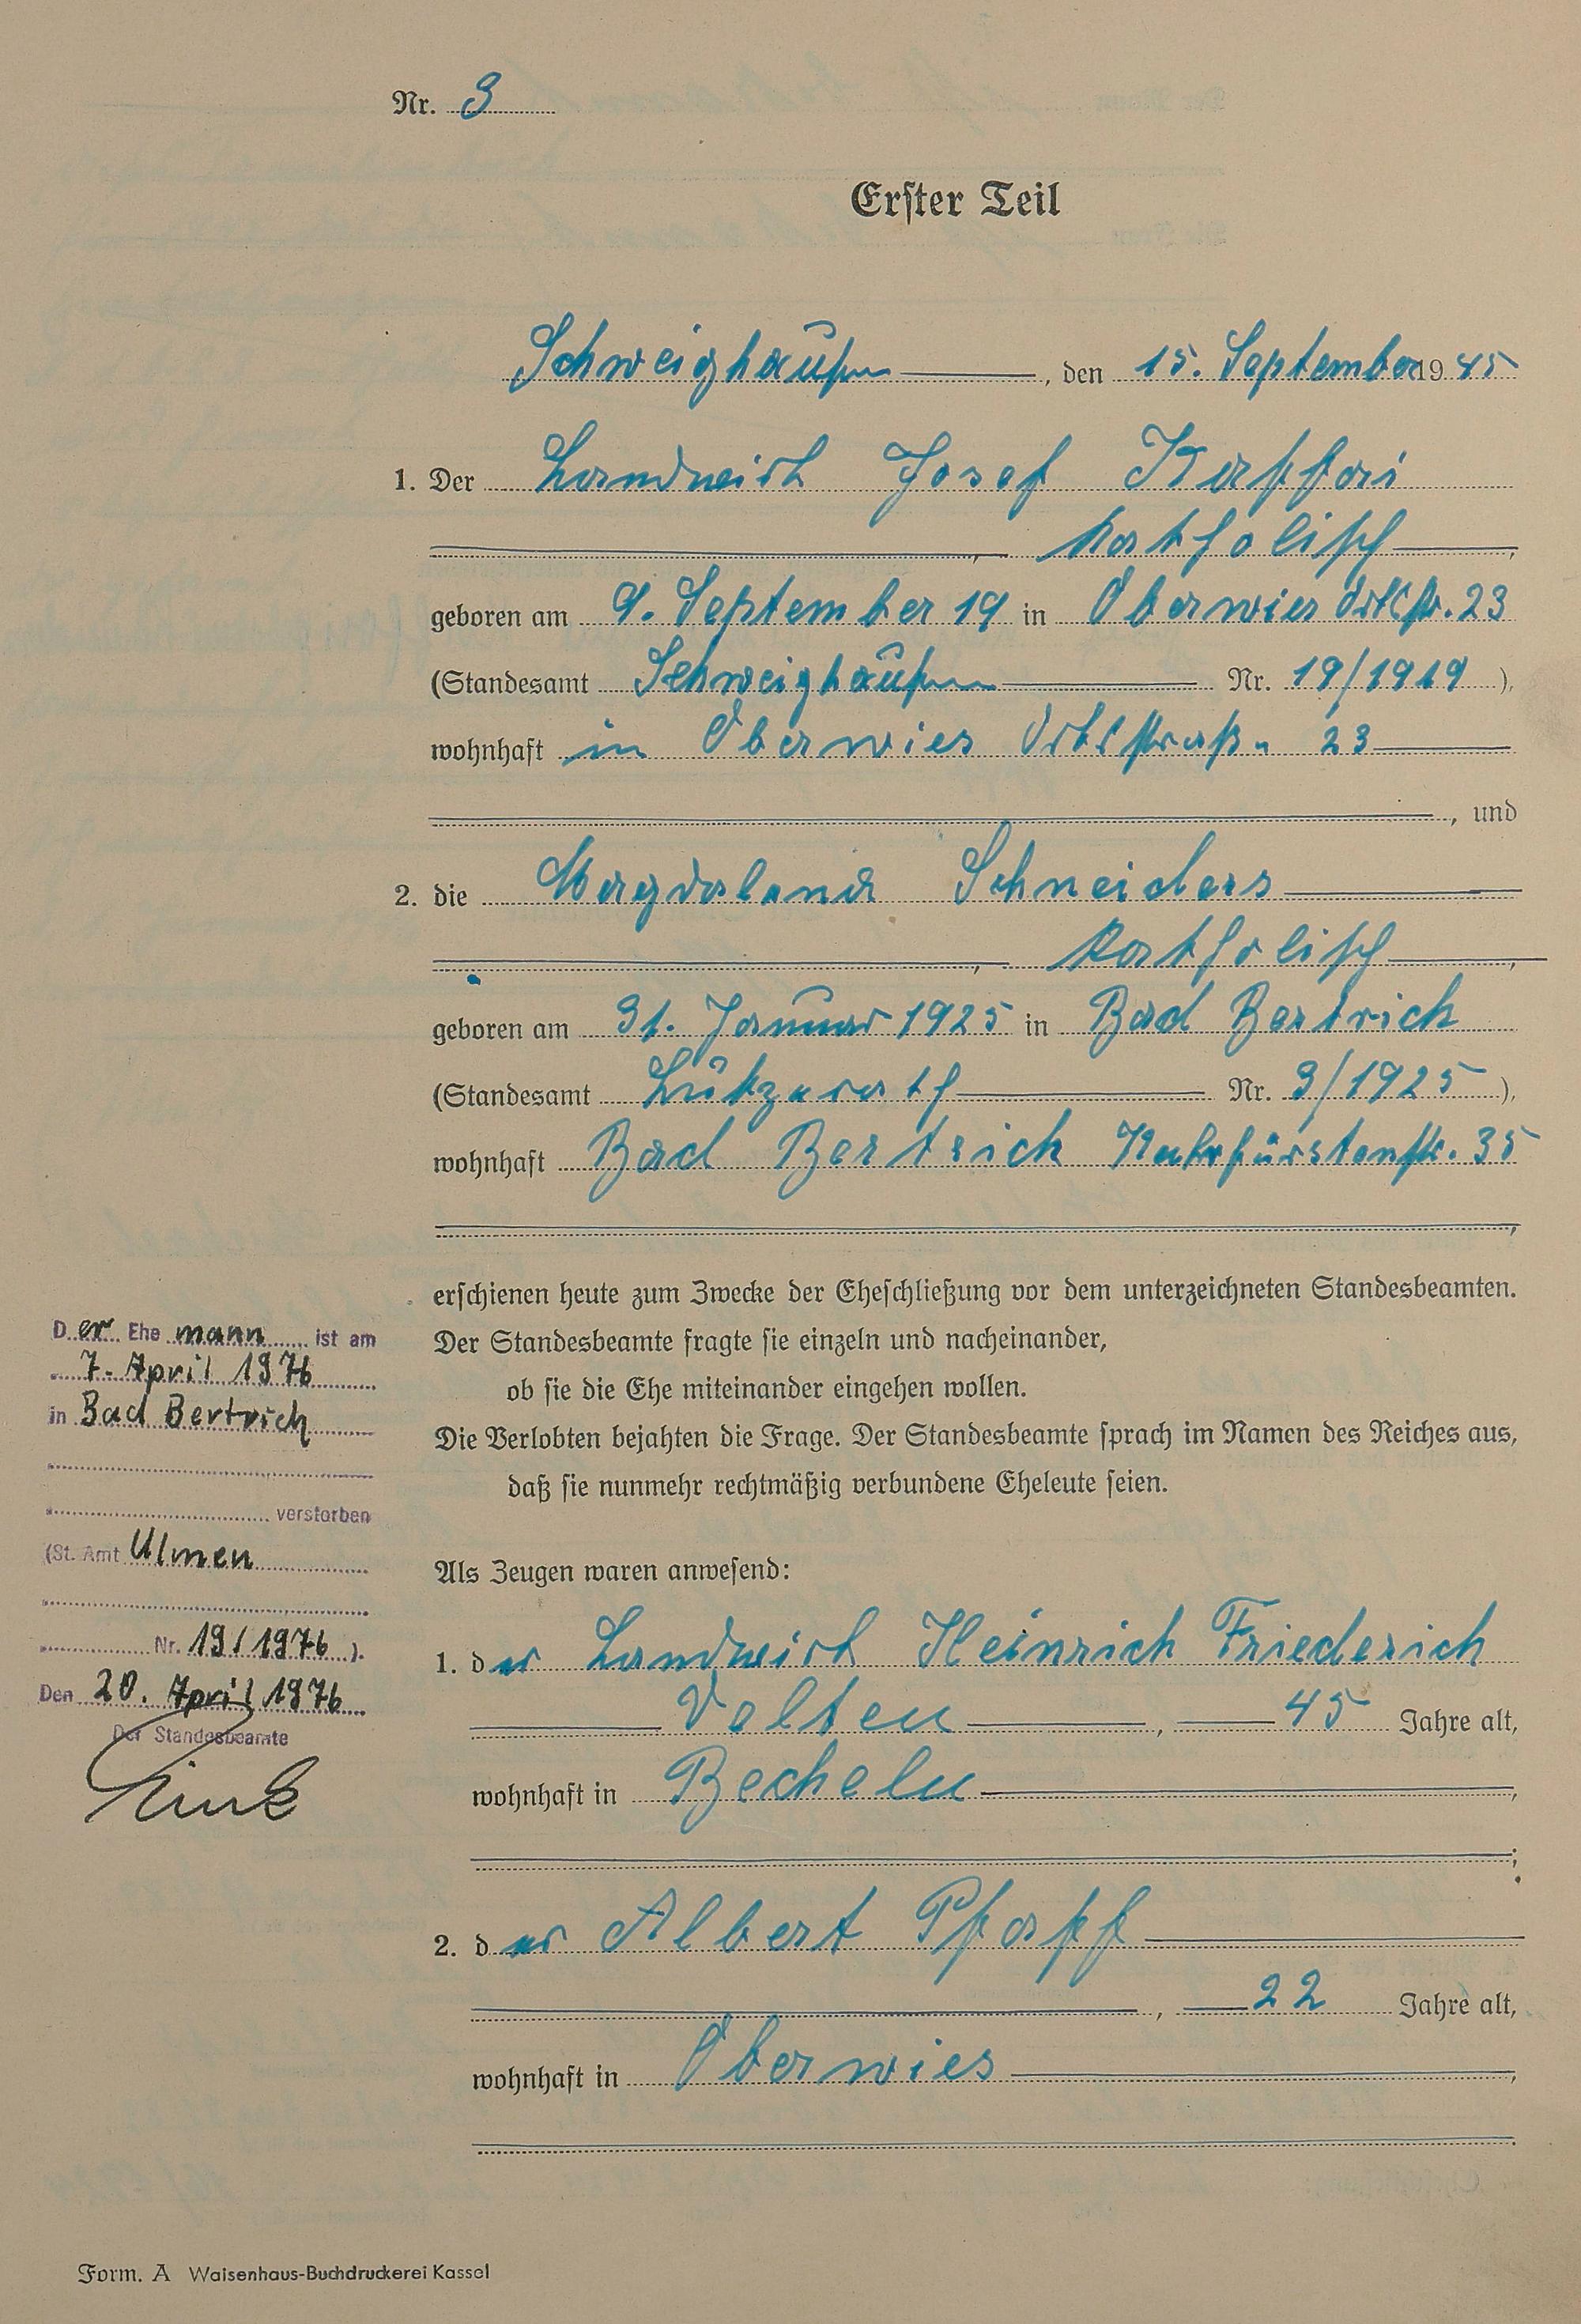 Nr. 3
Erster Teil
Schweighausen, den 15. September 1945
1. Der Landwirt Josef
, katholisch,
geboren am 9. September 19 in Oberwies Ortsstr. 23
(Standesamt Schweighausen Nr. 19/1919 ),
wohnhaft in Oberwies Ortsstraße 23
, und
2. die Magdalena Schneiders
, katholisch,
geboren am 31. Januar 1925 in Bad Bertrich
(Standesamt Lutzerath Nr. 3/1925 ),
wohnhaft Bad Bertrich Kuhrfürstenstr. 35
,
erschienen heute zum Zwecke der Eheschließung vor dem unterzeichneten Standesbeamten.
Der Standesbeamte fragte sie einzeln und nacheinander,
ob sie die Ehe miteinander eingehen wollen.
Die Verlobten bejahten die Frage. Der Standesbeamte sprach im Namen des Reiches aus,
daß sie nunmehr rechtmäßig verbundene Eheleute seien.
Als Zeugen waren anwesend:
1. der Landwirt Heinrich Friederich
Velten, 45 Jahre alt,
wohnhaft in Becheln,
;
2. der Albert Pfaff
, 22 Jahre alt,
wohnhaft in Oberwies,
.
Der Ehemann ist am
7. April 1976
in Bad Bertrich
verstorben
(St. Amt Ulmen
Nr. 19/1976 ).
Den 20. April 1976
Der Standesbeamte
Form. A Waisenhaus-Buchdruckerei Kassel